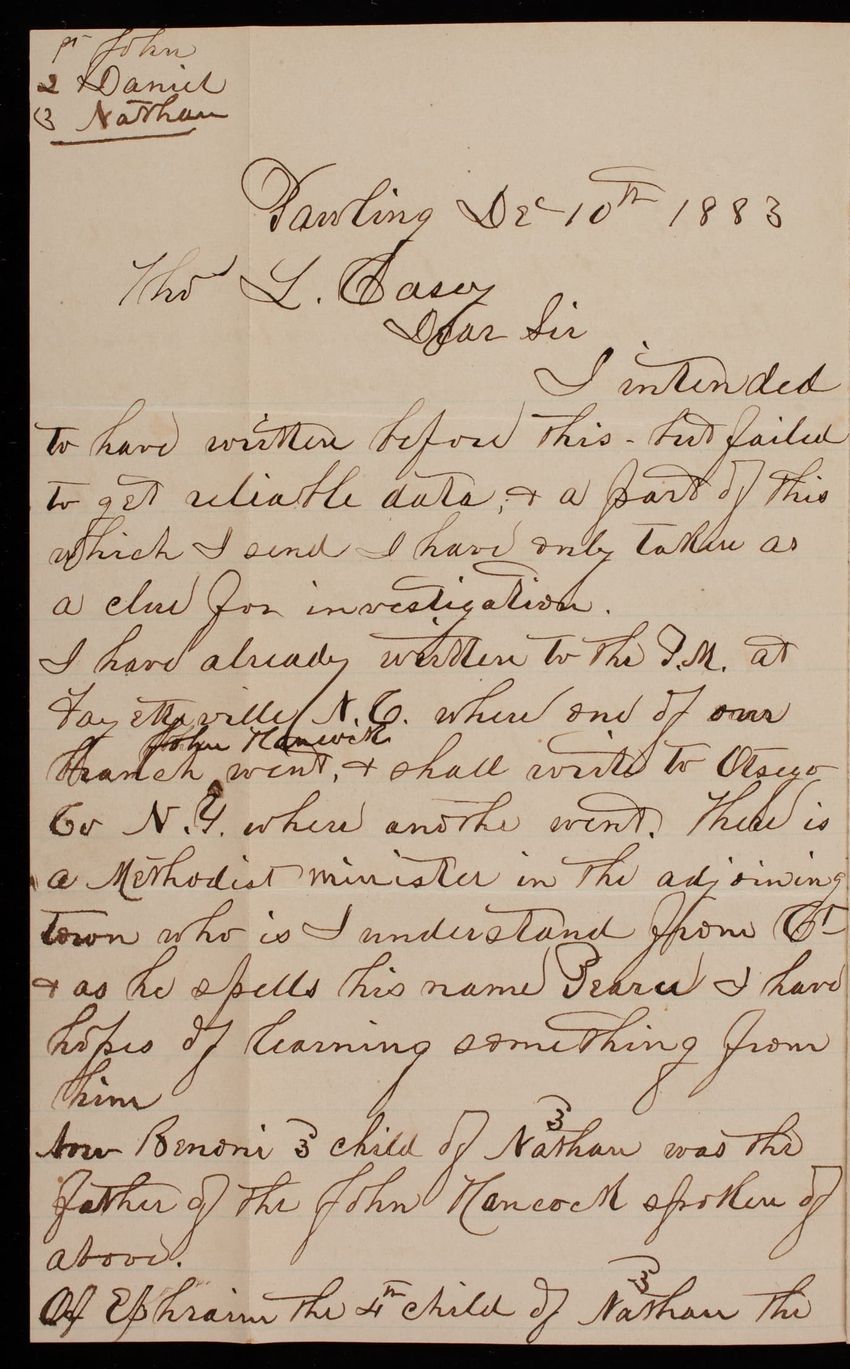 1st John
2 Daniel
3 Nathan
Pawling Dec 10th 1883
Thos L. Casey
Dear Sir
I intended
to have written before this - but failed
to get reliable data, & a part of this
which I send I have only taken as
a clue for investigation.
I have already written to the P.M. at
Fayetteville N.C. where one of our
John Hancock
branch went, & shall write to Otsego
Co N.Y. where anothe went. There is
a Methodist minister in the adjoining
town who is I understand from Ct
& as he spells his name Pearce I have
hopes of learning something from
him
Now Benoni 3 child of Nathan 3 was the
father of the John Hancock spoken of
above.
Of Ephraim the 4th child of Nathan 3 the